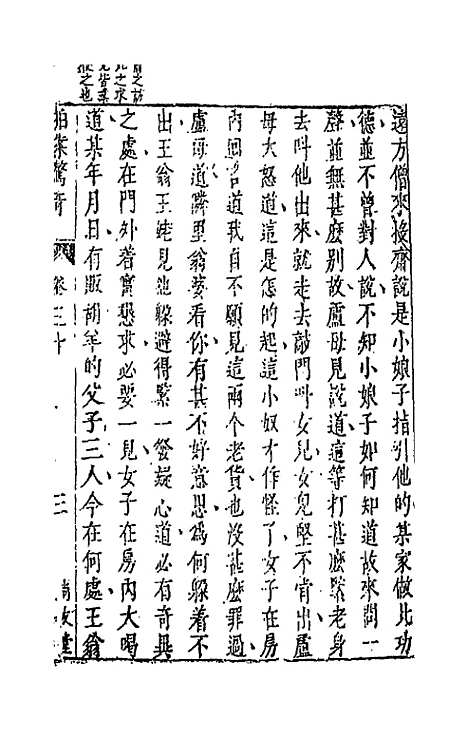 遠方僧來投齋說是小娘子指引他的某家做此功
德並不曾對人說不知小娘子如何知道故來問一
聲並無甚麽別故盧母見說道這等打甚麽緊老身
去呌他出來就走去敲門呌女兒女兒堅不肯出盧
母大怒道這是怎的起這小奴才作怪了女子在房
內回言道我自不願見這兩个老貨也沒甚麽罪過
盧母道隣里翁婆看你有甚不好意思爲何躱着不
出王翁王姥見他躱避得緊一發疑心道必有奇異
之處在門外着實懇求必要一見女子在房內大喝
道某年月日有販胡羊的父子三人今在何處王翁
拍案驚奇
卷三十
三
尚友堂